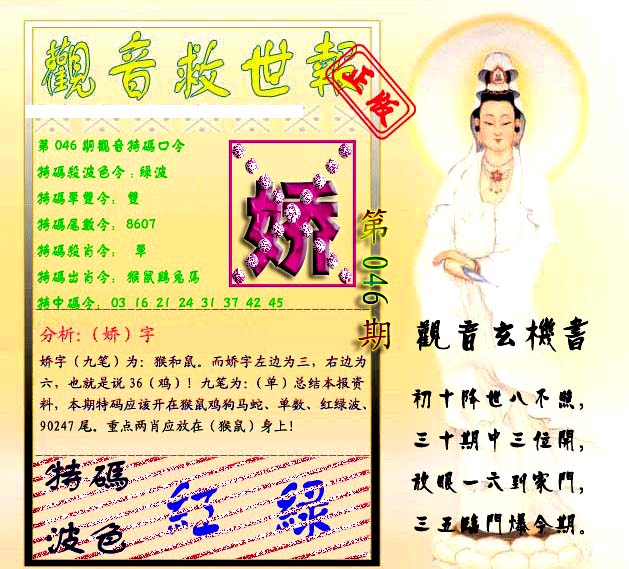 觀音救世報
正版
第046期觀音特碼口令
特碼殺波色令:綠波
特碼單雙令: 雙
特碼尾數令: 8607
特碼殺肖令: 單
特碼出肖令: 猴鼠鷄兔馬
特中碼令: 03 16 21 24 31 37 42 45
娇
第046期
分析:(娇)字
娇字(九笔)为:猴和鼠。而娇字左边为三,右边为
六,也就是说36(鸡)!九笔为:(单)总结本报资
料,本期特码应该开在猴鼠鸡狗马蛇、单数、红绿波、
90247尾。重点两肖应放在(猴鼠)身上!
特碼
波色
紅 綠
觀音玄機書
初十降世八不照,
三十期中三位開,
放眼一六到家門,
三五臨門爆今期。